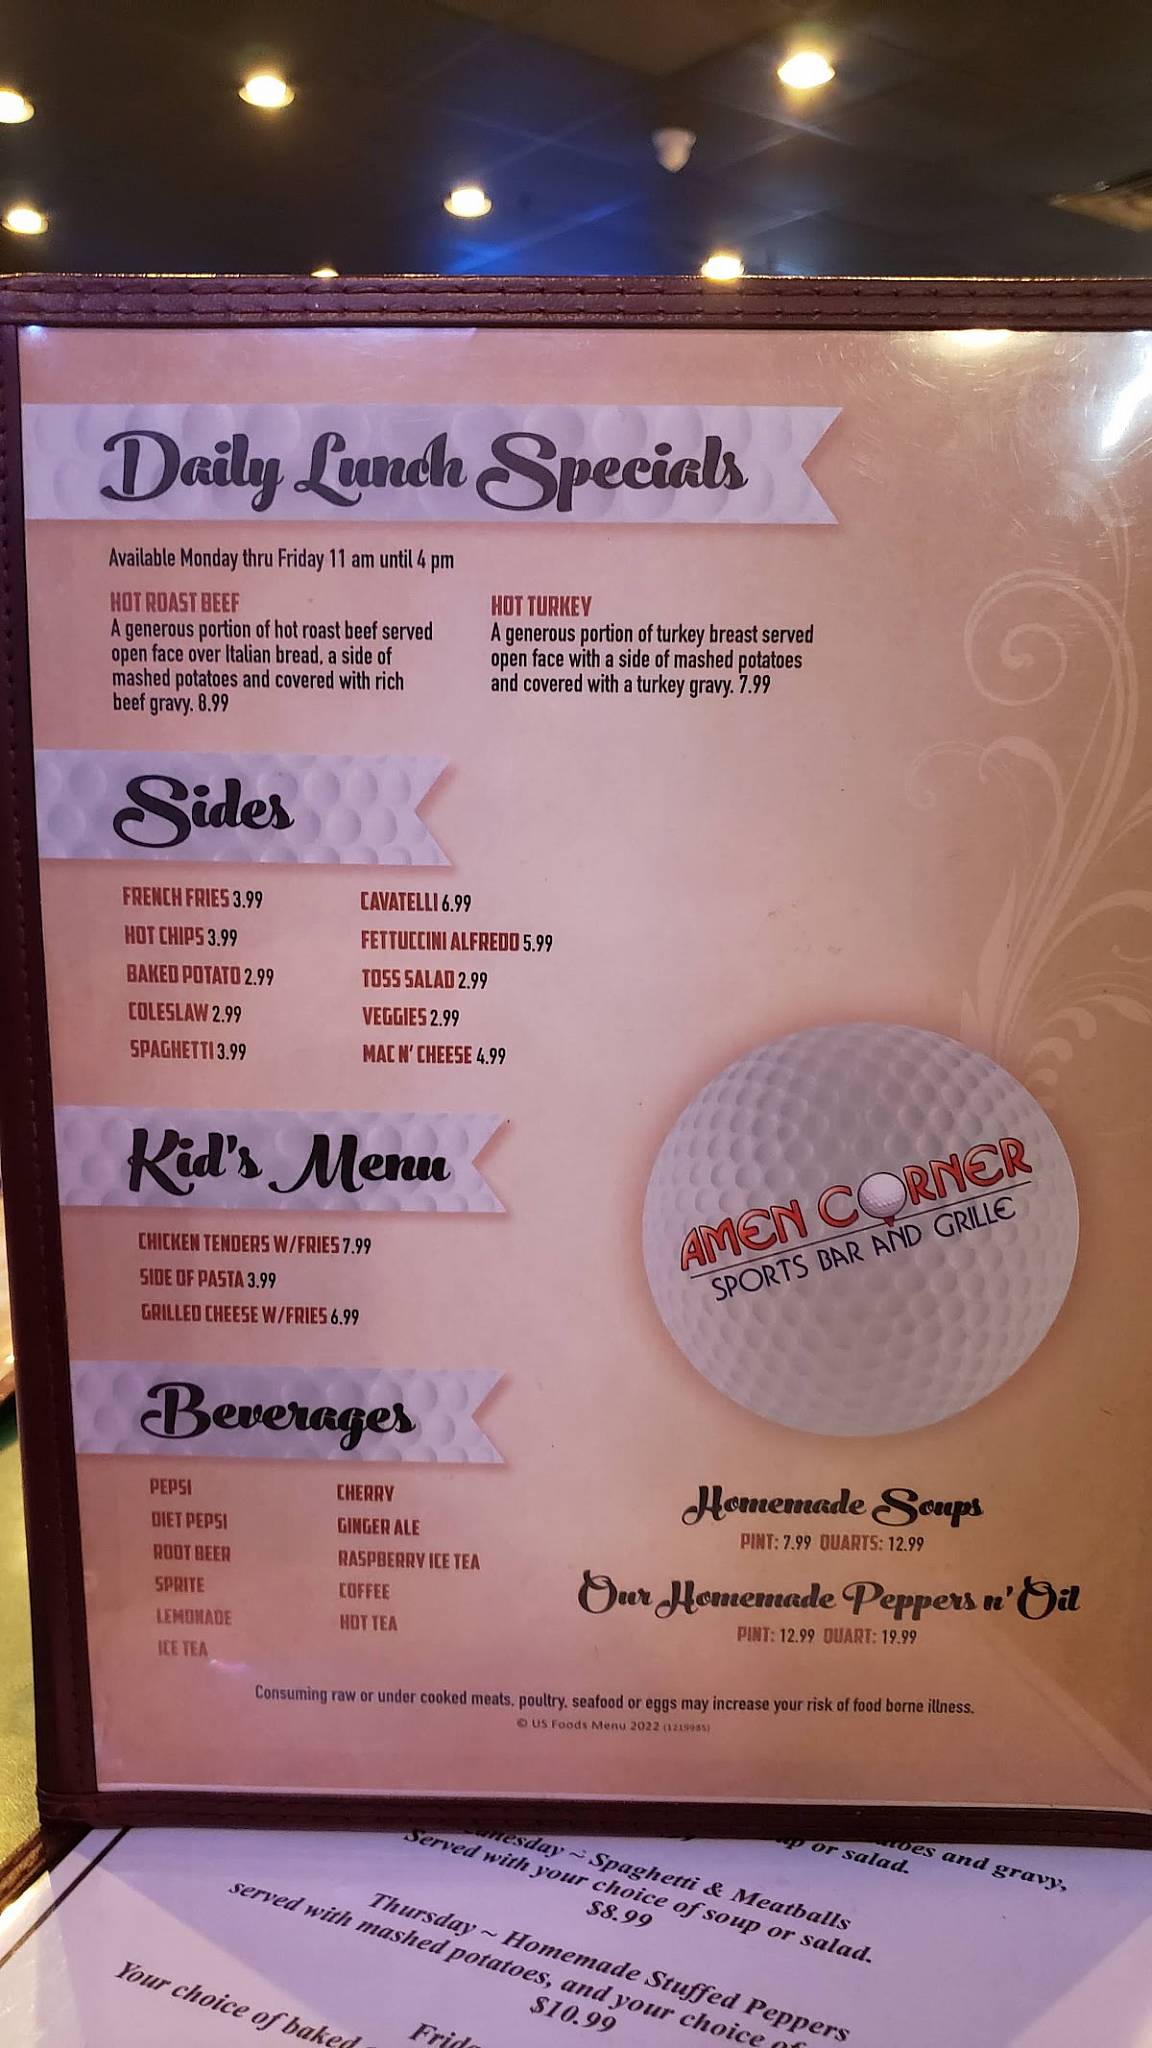 Daily Lunch Specials
Available Monday thru Friday 11 am until 4 pm
HOT ROAST BEEF
A generous portion of hot roast beef served
open face over Italian bread, a side of
mashed potatoes and covered with rich
beef gravy. 8.99
HOT TURKEY
A generous portion of turkey breast served
open face with a side of mashed potatoes
and covered with a turkey gravy. 7.99
Sides
FRENCH FRIES 3.99
HOT CHIPS 3.99
BAKED POTATO 2.99
COLESLAW 2.99
SPAGHETTI 3.99
CAVATELLI 6.99
FETTUCCINI ALFREDO 5.99
TOSS SALAD 2.99
VEGGIES 2.99
MAC N' CHEESE 4.99
Kid's Menu
CHICKEN TENDERS W/FRIES 7.99
SIDE OF PASTA 3.99
GRILLED CHEESE W/FRIES 6.99
AMEN CORNER
SPORTS BAR AND GRILLE
Beverages
PEPSI
DIET PEPSI
ROOT BEER
SPRITE
LEMONADE
ICE TEA
CHERRY
GINGER ALE
RASPBERRY ICE TEA
COFFEE
HOT TEA
Homemade Soups
PINT: 7.99 QUARTS: 12.99
Our Homemade Peppers n' Oil
PINT: 12.99 QUART: 19.99
Consuming raw or under cooked meats, poultry, seafood or eggs may increase your risk of food borne illness.
© US Foods Menu 2022 (1219985)
and gravy,
or salad.
~ Spaghetti & Meatballs
Served with your choice of soup or salad.
$8.99
Thursday ~ Homemade Stuffed Peppers
served with mashed potatoes, and your choice of
$10.99
Your choice of baked